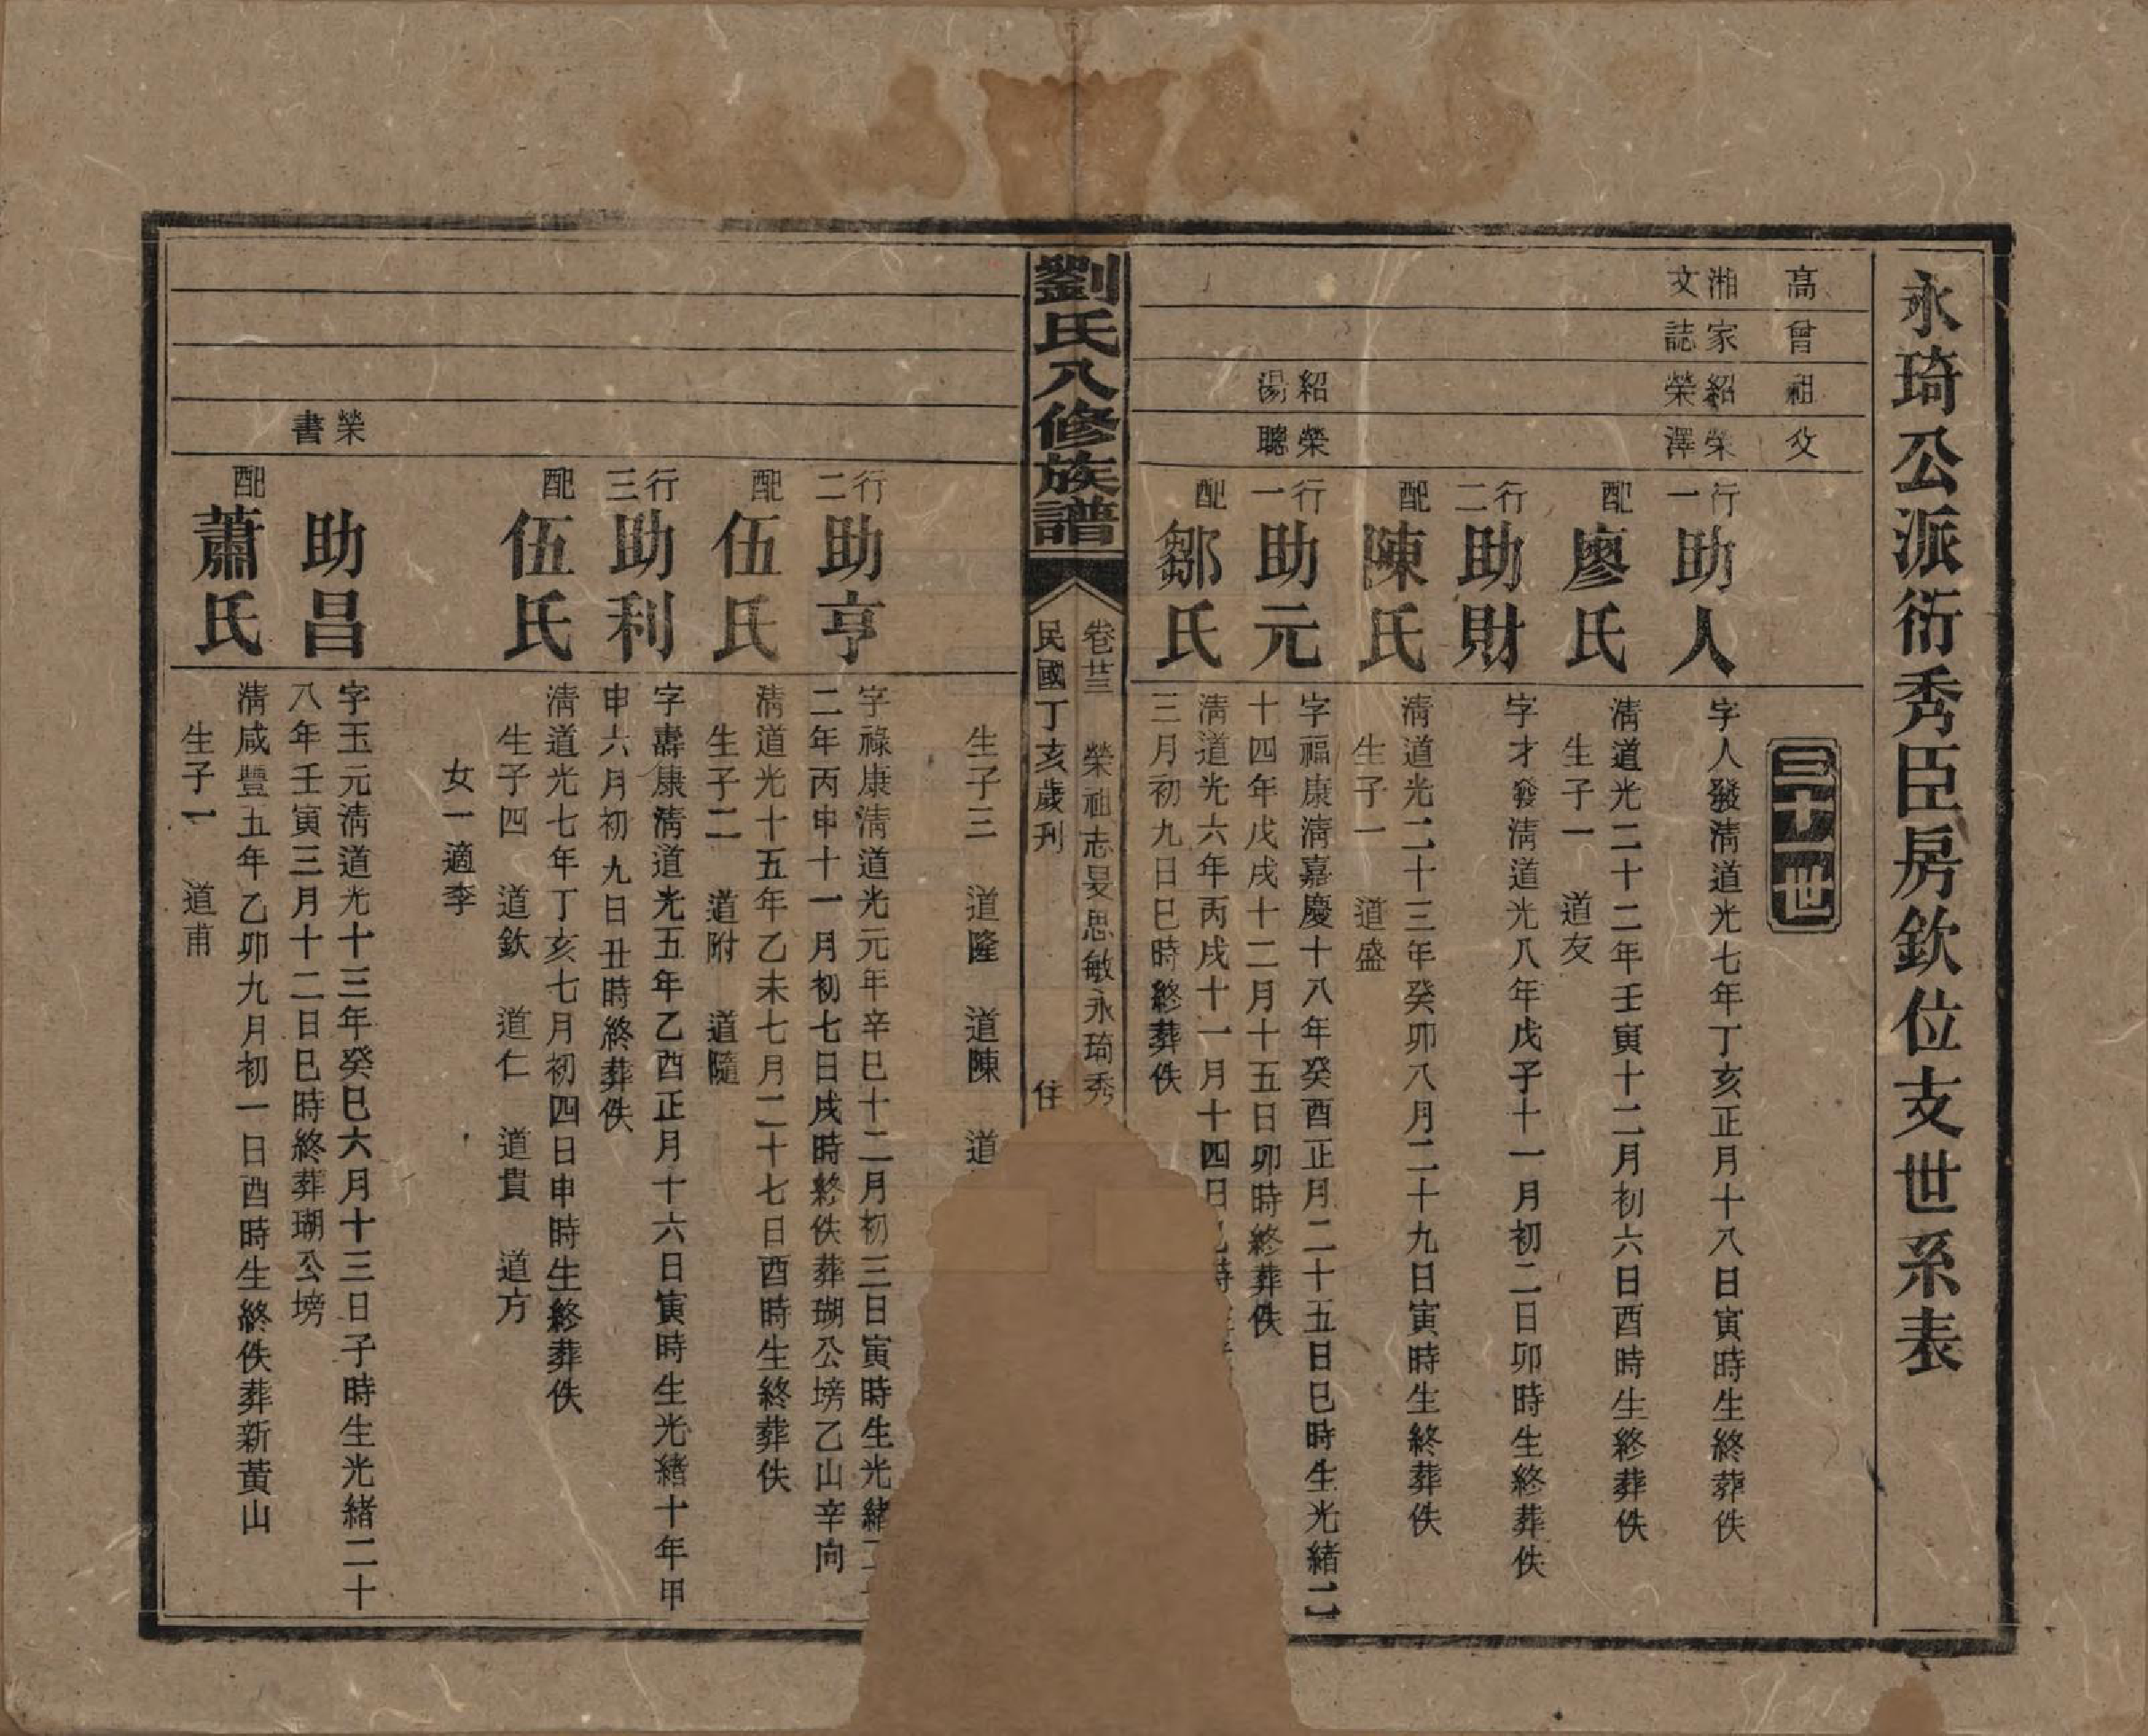 永琦公派衍秀臣房欽位支世系表
高 曾 祖 父
三十世
湘文 家誌 紹榮 榮澤
行一 助人
字人發清道光七年丁亥正月十八日寅時生終葬佚
配 廖氏
清道光二十二年壬寅十二月初六日酉時生終葬佚
生子一 道友
行二 助財
字才發清道光八年戊子十一月初二日卯時生終葬佚
配 陳氏
清道光二十三年癸卯八月二十九日寅時生終葬佚
生子一 道盛
紹湯 榮聰
行一 助元
字福康清嘉慶十八年癸酉正月二十五日巳時生光緒二
十四年戊戌十二月十五日卯時終葬佚
配 鄒氏
清道光六年丙戌十一月十四日
三月初九日巳時終葬佚
劉氏八修族譜
卷廿三 榮祖志旻思敏永琦秀
民國丁亥歲刊 住
生子三 道隆 道陳 道
行二 助亨
字祿康清道光元年辛巳十二月初三日寅時生光緒二
二年丙申十一月初七日戌時終佚葬瑚公塝乙山辛向
配 伍氏
清道光十五年乙未七月二十七日酉時生終葬佚
生子二 道附 道隨
行三 助利
字壽康清道光五年乙酉正月十六日寅時生光緒十年甲
申六月初九日丑時終葬佚
配 伍氏
清道光七年丁亥七月初四日申時生終葬佚
生子四 道欽 道仁 道貴 道方
女一適李
榮書
助昌
字玉元清道光十三年癸巳六月十三日子時生光緒二十
八年壬寅三月十二日巳時終葬瑚公塝
配 蕭氏
清咸豐五年乙卯九月初一日酉時生終佚葬新黃山
生子一 道甫